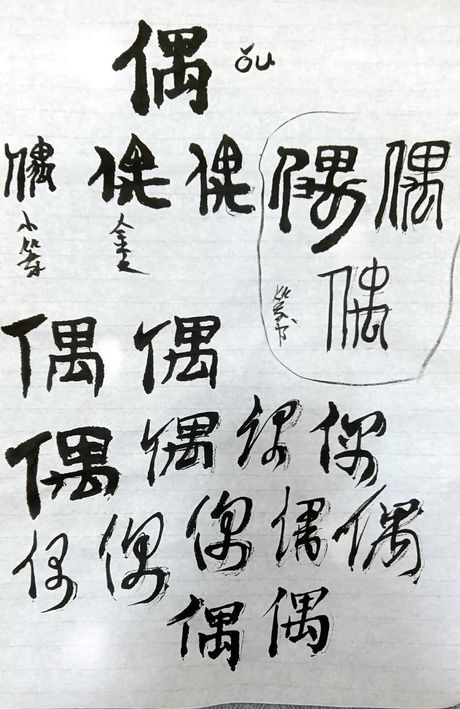 偶 ǒu
偶 偶 偶 偶 偶
小篆 金文
偶
篆书
偶 偶
偶 偶 偶 偶
偶 偶 偶 偶 偶
偶 偶